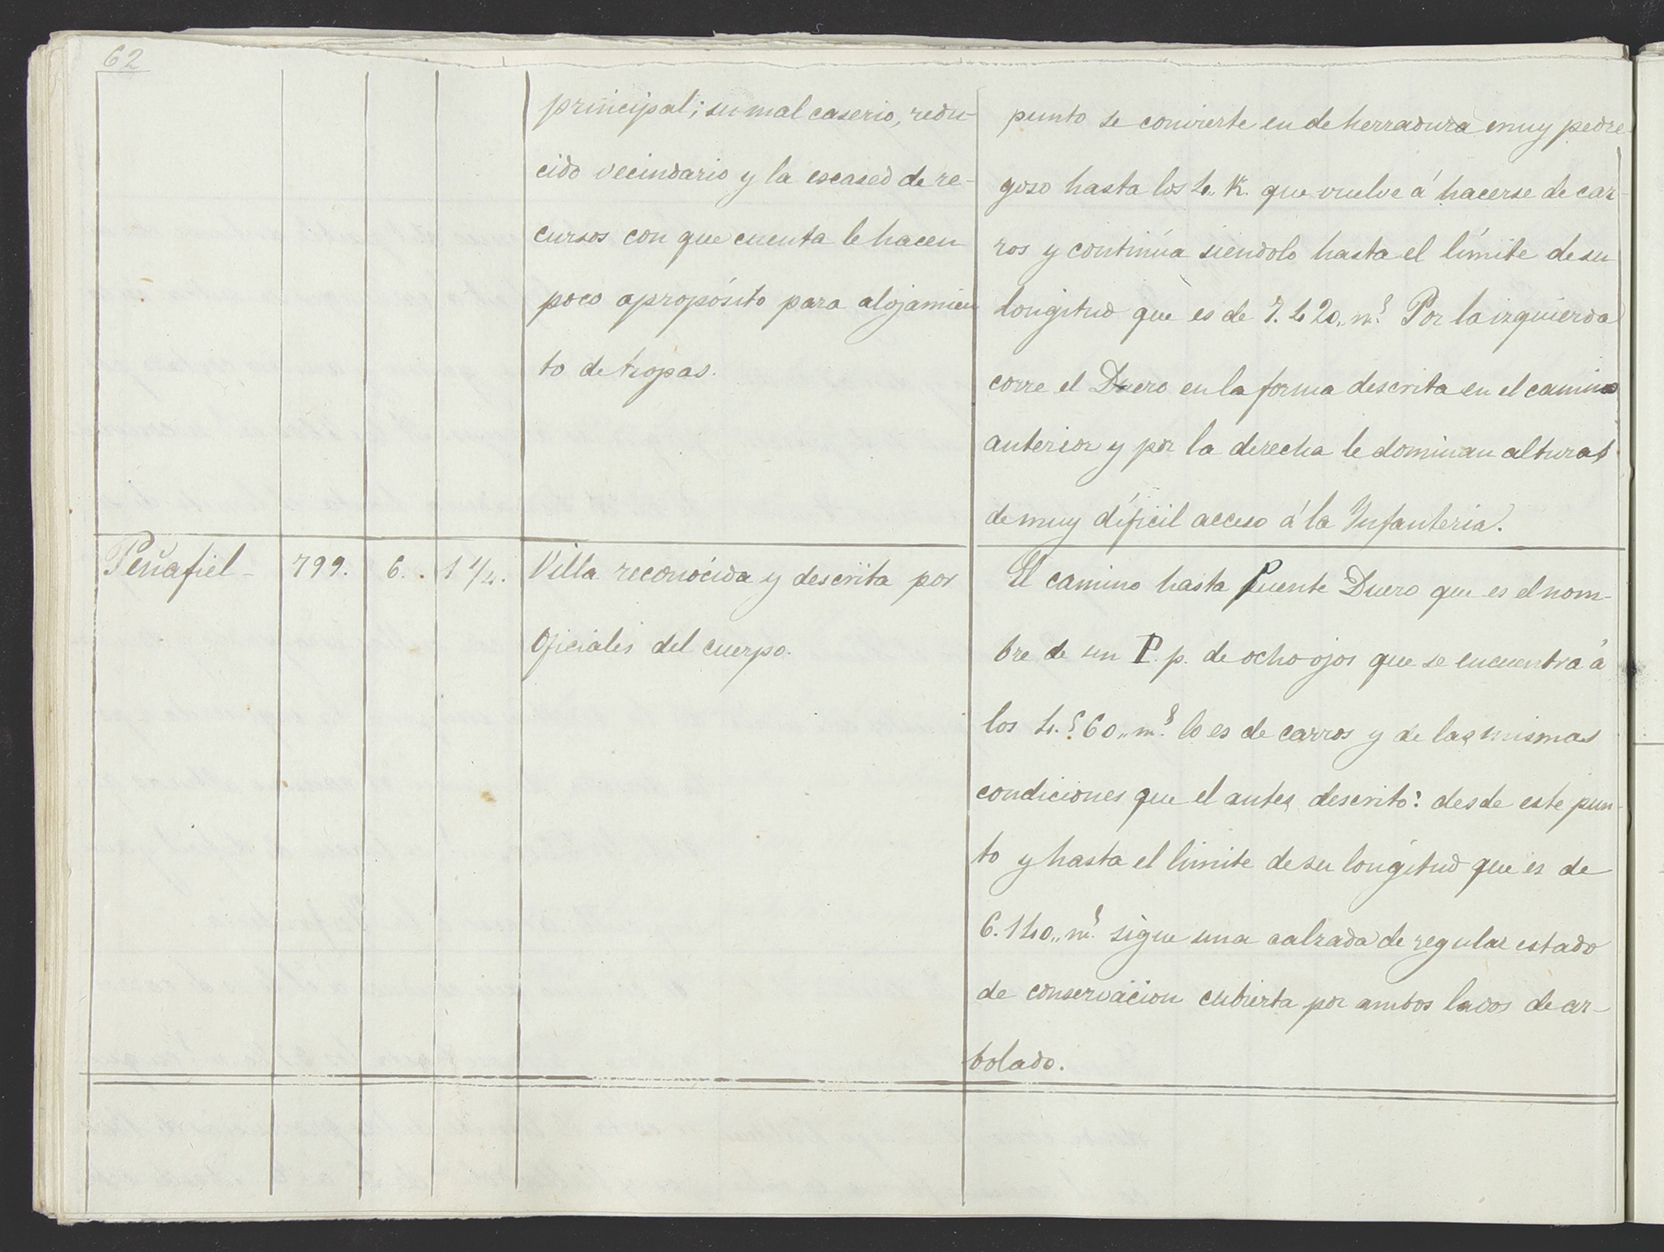 62
principal; su mal caserio, redu-
cido vecindario y la escased de re-
cursos con que cuenta le hacen
poco apropósito para alojamien
to de tropas.
punto se convierte en de herradura muy pedre
goso hasta los 4,, K. que vuelve á hacerse de car-
ros y continúa siendolo hasta el límite de su
longitud que es de 7.420,, m.s Por la izquierda
corre el Duero en la forma descrita en el camino
anterior y por la derecha le dominan alturas
de muy difícil acceso á la Infanteria.
Peñafiel - 799. 6. 1 1/4. Villa reconocida y descrita por
Oficiales del cuerpo.
El camino hasta Puente Duero que es el nom-
bre de un P. p. de ocho ojos que se encuentra á
los 4.560,, m.s lo es de carros y de las mismas
condiciones que el antes descrito: desde este pun-
to y hasta el limite de su longitud que es de
6.140,, m.s sigue una calzada de regular estado
de conservacion cubierta por ambos lados de ar-
bolado.